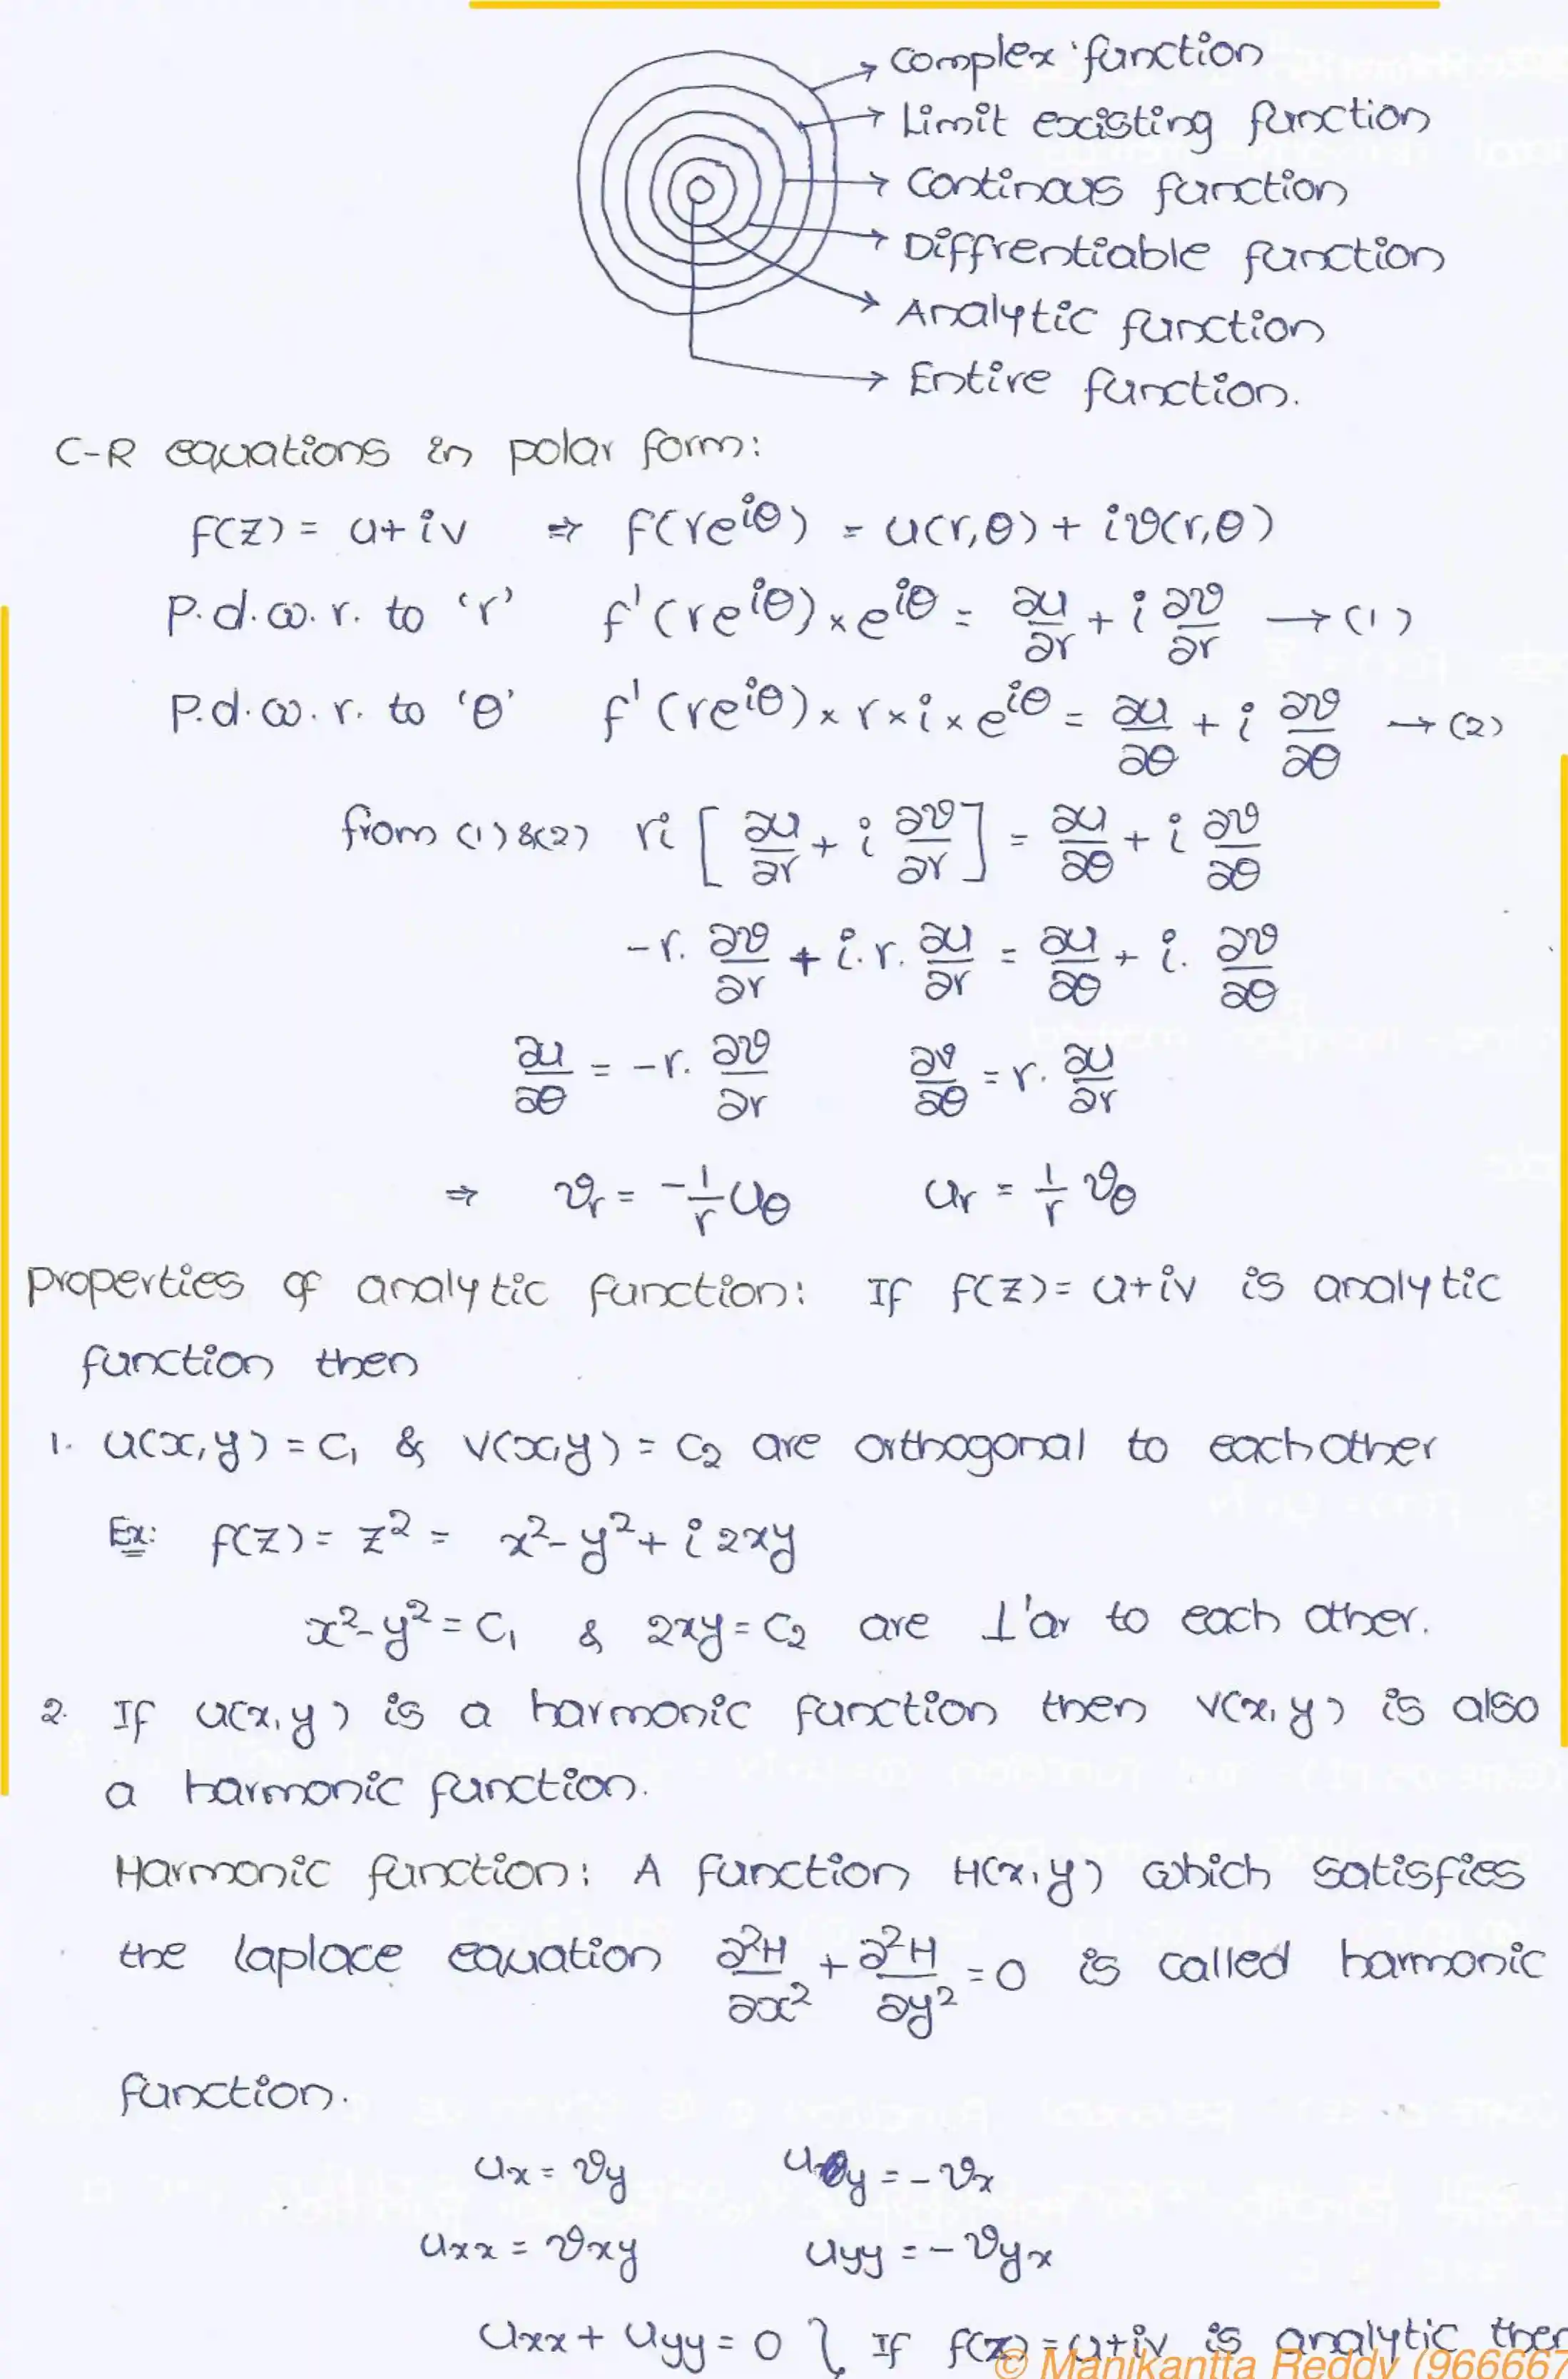 Complex function
Limit existing function
Continous function
Diffrentiable function
Analytic function
Entire function.
C-R equations in polar form:
f(z) = u+iv ⇒ f(re^{iθ}) = u(r,θ) + iv(r,θ)
P.d.w.r. to 'r' f'(re^{iθ}) × e^{iθ} = ∂u/∂r + i ∂v/∂r → (1)
P.d.w.r. to 'θ' f'(re^{iθ}) × r × i × e^{iθ} = ∂u/∂θ + i ∂v/∂θ → (2)
from (1) &(2) ri [ ∂u/∂r + i ∂v/∂r ] = ∂u/∂θ + i ∂v/∂θ
-r. ∂v/∂r + i.r. ∂u/∂r = ∂u/∂θ + i. ∂v/∂θ
∂u/∂θ = -r. ∂v/∂r ∂v/∂θ = r. ∂u/∂r
⇒ v_r = -1/r u_θ u_r = 1/r v_θ
Properties of analytic function: If f(z) = u+iv is analytic
function then
1. u(x,y) = c₁ & v(x,y) = c₂ are orthogonal to eachother
Ex: f(z) = z² = x²-y²+i2xy
x²-y² = c₁ & 2xy = c₂ are ⊥'ar to each other.
2. If u(x,y) is a harmonic function then v(x,y) is also
a harmonic function.
Harmonic function: A function H(x,y) which satisfies
the laplace equation ∂²H/∂x² + ∂²H/∂y² = 0 is called harmonic
function.
u_x = v_y u_y = -v_x
u_xx = v_xy u_yy = -v_yx
u_xx + u_yy = 0 } If f(z) = u+iv is analytic then
© Manikantta Reddy (966667